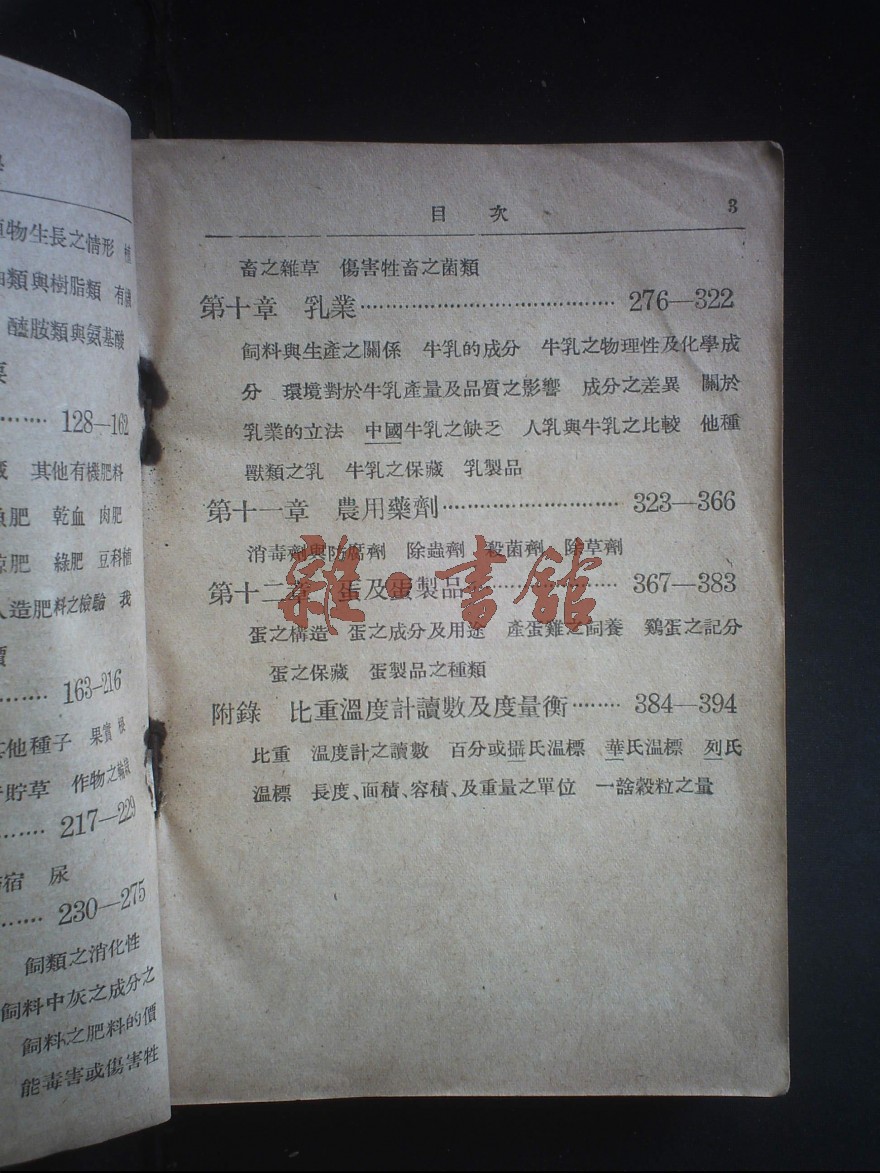 植物生長之情形
油類與樹脂類 有機
醯胺類與氨基酸
128—162
其他有機肥料
魚肥 乾血 肉肥
綠肥 豆科植
人造肥料之檢驗 我
163—216
其他種子 果實 根
貯草 作物之
217—229
宿 尿
230—275
飼類之消化性
飼料中灰之成分之
飼料之肥料的價
能毒害或傷害牲
目 次 3
畜之雜草 傷害牲畜之菌類
第十章 乳業 276—322
飼料與生產之關係 牛乳的成分 牛乳之物理性及化學成
分 環境對於牛乳產量及品質之影響 成分之差異 關於
乳業的立法 中國牛乳之缺乏 人乳與牛乳之比較 他種
獸類之乳 牛乳之保藏 乳製品
第十一章 農用藥劑 323—366
消毒劑與防腐劑 除蟲劑 殺菌劑 除草劑
第十二章 蛋及蛋製品 367—383
蛋之構造 蛋之成分及用途 產蛋雞之飼養 鷄蛋之記分
蛋之保藏 蛋製品之種類
附錄 比重溫度計讀數及度量衡 384—394
比重 溫度計之讀數 百分或攝氏溫標 華氏温標 列氏
溫標 長度、面積、容積、及重量之單位 一諳穀粒之量
雜·書館